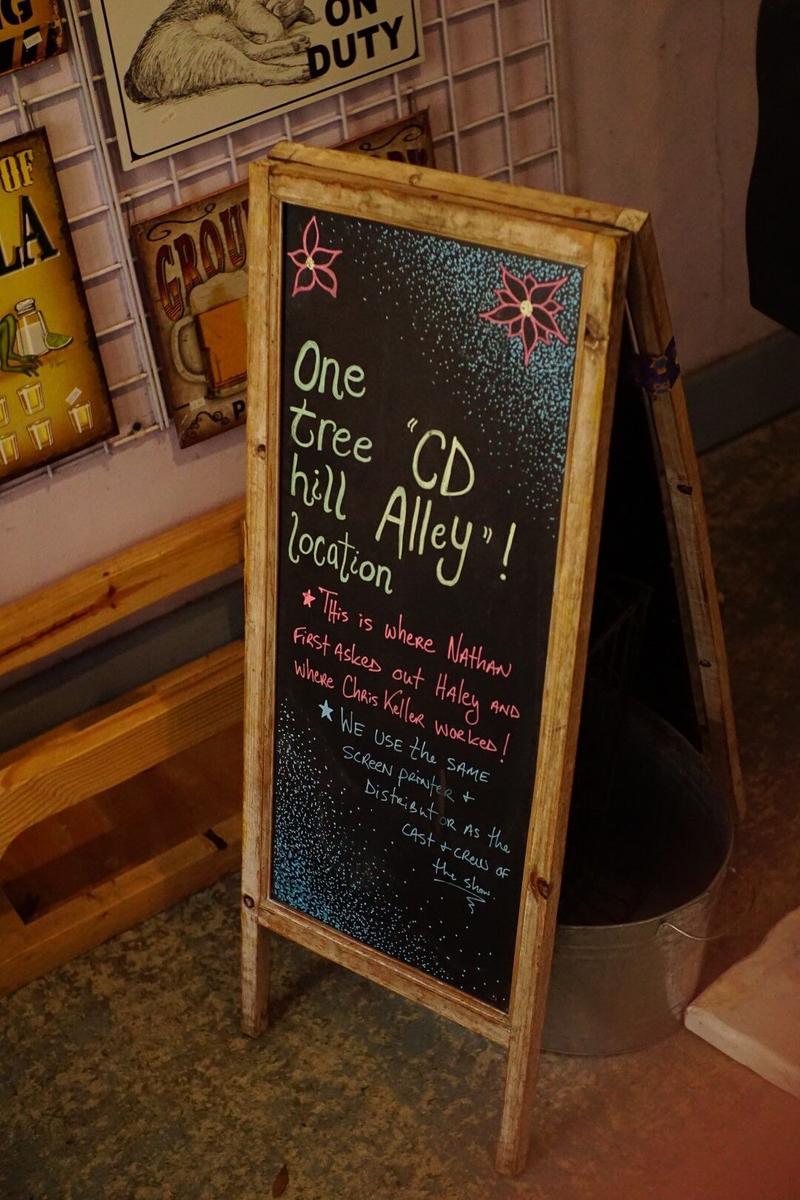 NG
ON
DUTY
OF
LA
GROU
One
tree
hill
location
"CD
Alley"!
THis is where NATHAN
FIRST ASKED out HALey AND
where CHRis Keller worked!
WE USE the SAME
SCREEN PRINTER +
DistributOR AS the
CAST + CREW OF
the show